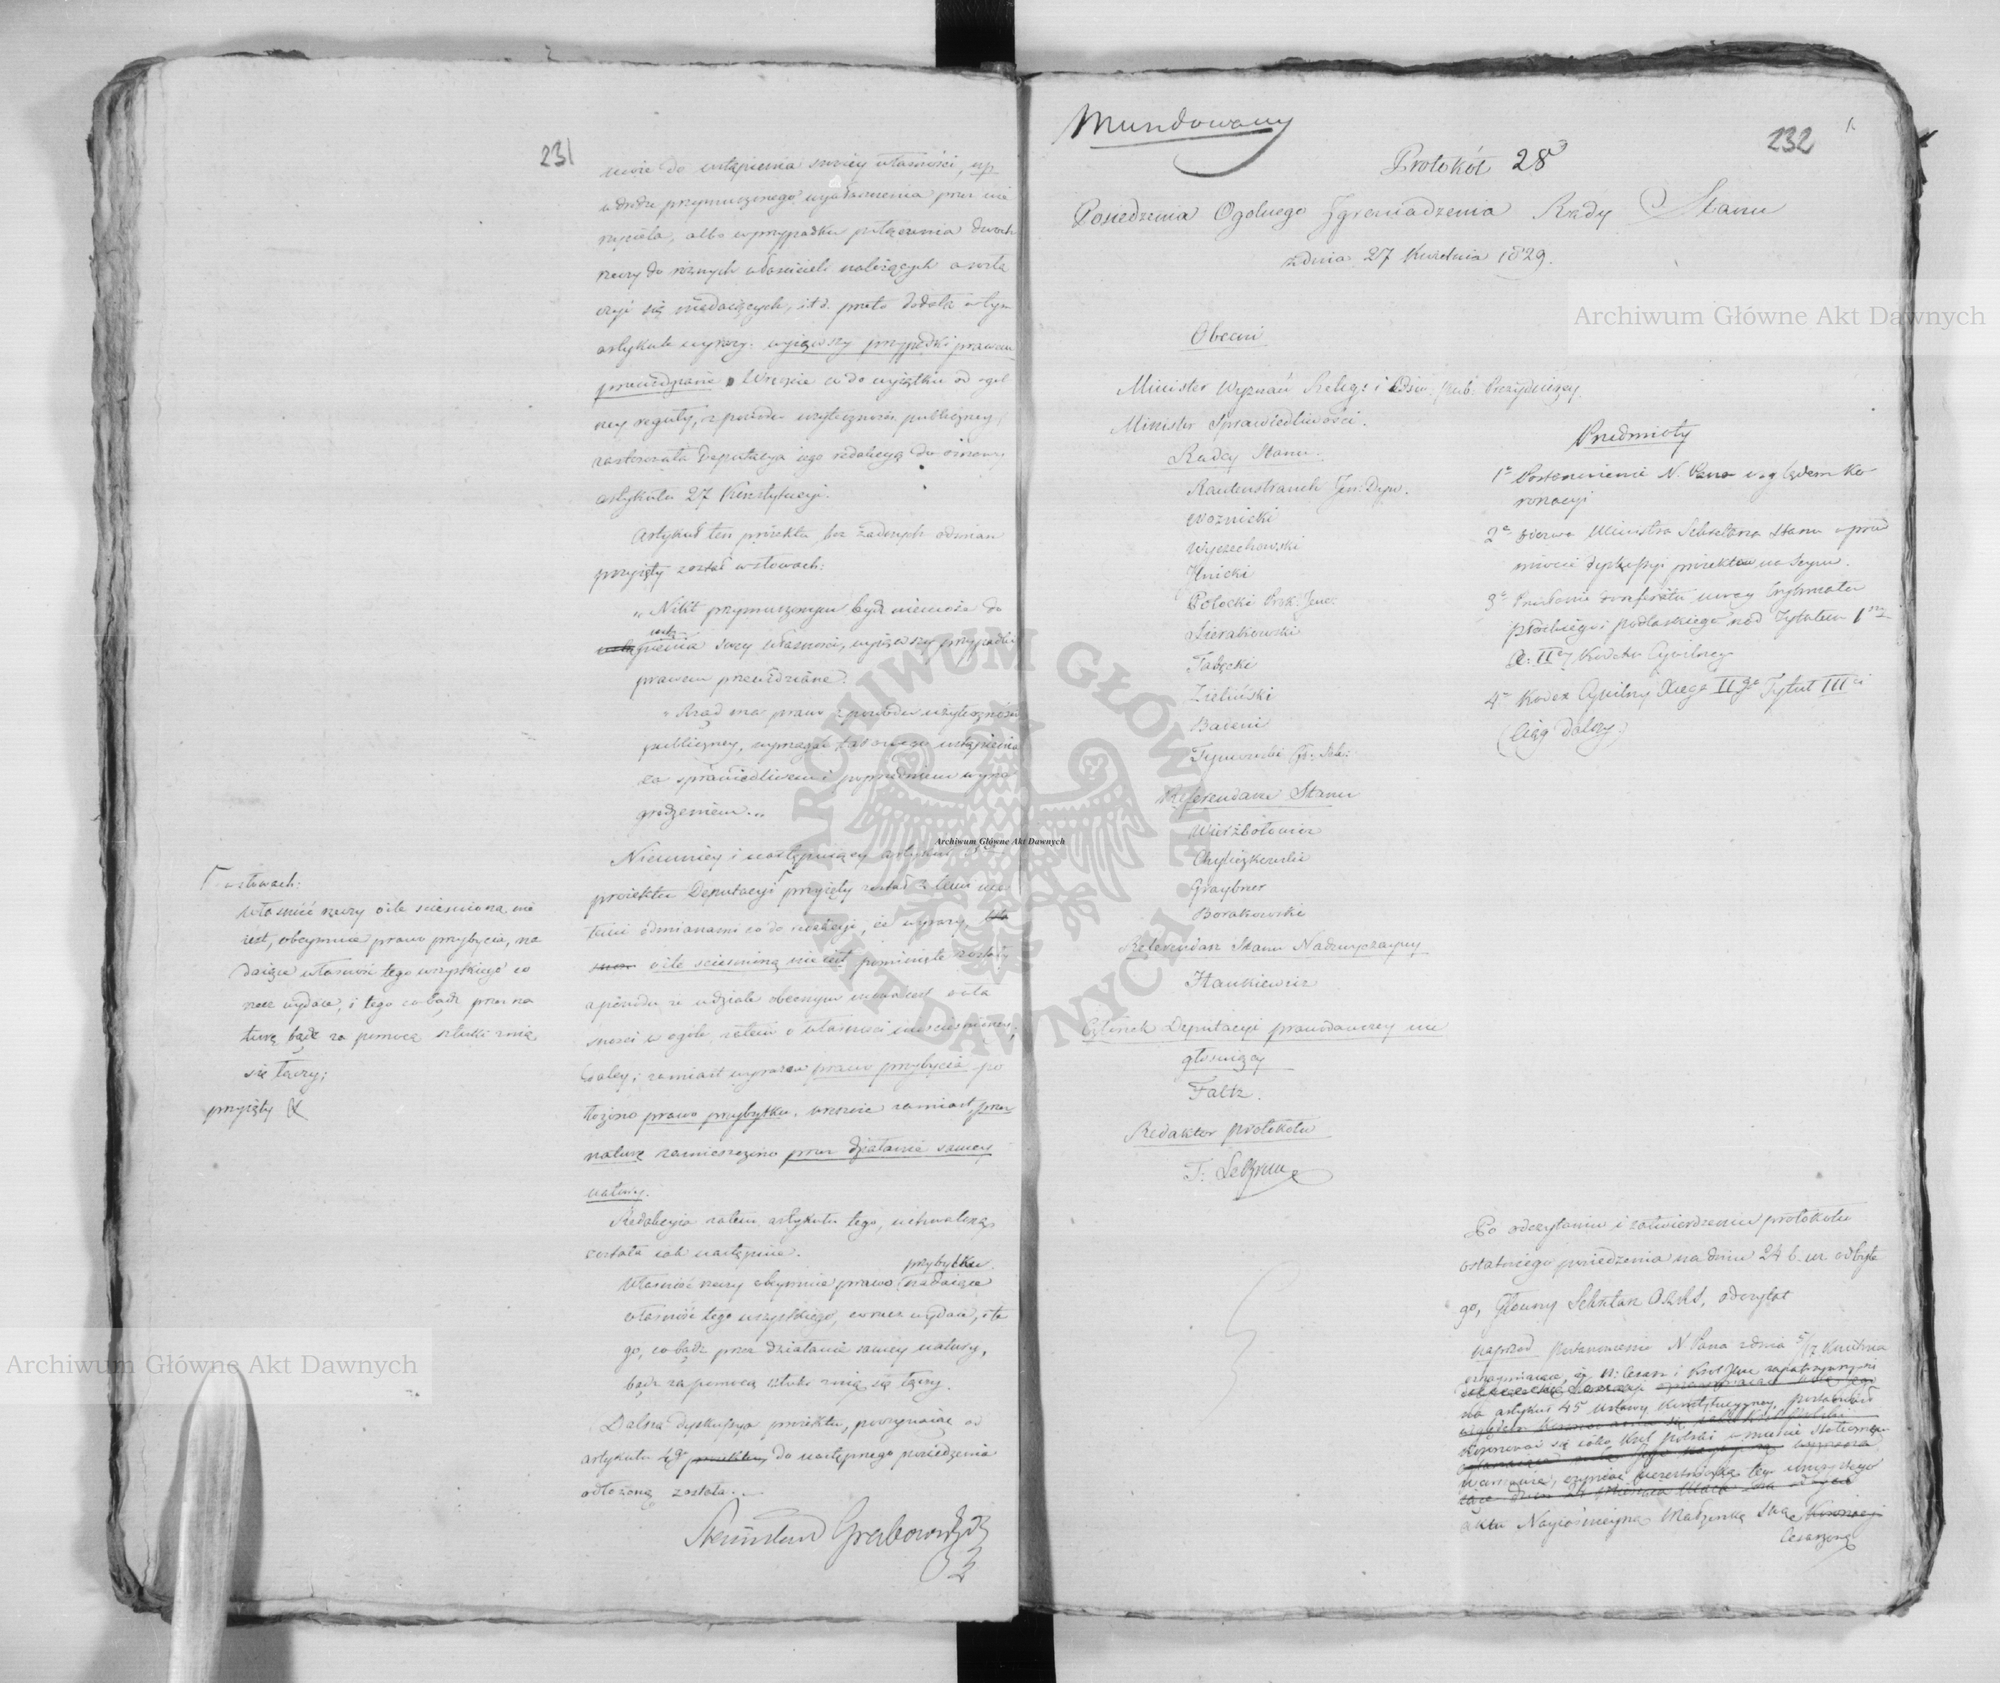 231
może do ustąpienia swoiey własności, np.
w drodze przymuszonego wywłaszczenia przez
albo w przypadku połączenia dwóch
rzeczy do różnych właścicieli należących a
się niedaiących, i t.d. przeto dodała w tym
artykule wyrazy: wyiąwszy przypadki prawem
przewidziane. Wreszcie co do wyiątku od ogól
ney reguły, z powodu użyteczności publiczney,
zastosowała Deputacya iego redakcyą do osnowy
artykułu 27 Konstytucyi.
Artykuł ten projektu bez żadnych odmian
przyięty został w słowach:
„Nikt przymuszonym bydź niemoże do
ustąpienia swey własności, wyiąwszy przypadki
prawem przewidziane.
„Rząd ma prawo z powodu użyteczności
publiczney, wymagać takowego ustąpienia
za sprawiedliwem i poprzedniem wyna
grodzeniem.„
Niemniey i następuiący artykuł
proiektu Deputacyi przyięty został z temi
odmianami co do redakcyi, że wyrazy,
o ile ścieśnioną nie iest pominięte zostały
a powodu że w dziale obecnym mowa iest o wła
sności w ogóle, zatem o własności nieścieśnioney,
daley; zamiast wyrazów prawo przybycia po
łożono prawo przybytku, wreszcie zamiast przez
naturę zamieszczono przez działanie samey
natury.
Redakcyia zatem artykułu tego, uchwaloną
została iak następuie.
przybytku
Własność rzeczy obeymuie prawo nadaiące
własność tego wszystkiego, co rzecz wydaie, i te
go, co bądź przez działanie samey natury,
bądź za pomocą sztuki z nią się łączy.
Dalsza dyskussya proiektu, poczynaiąc od
artykułu 49o proiektu, do następnego posiedzenia
odłożoną została.
Stanisław Grabowski
w słowach:
Własność rzeczy o ile ścieśnioną nie
iest, obeymuie prawo przybycia, na
daiące własność tego wszystkiego co
rzecz wydaie, i tego co bądź przez na
turę bądź za pomocą sztuki z nią
się łączy;
przyięty
Mundowany
232
Protokół 28
Posiedzenia Ogólnego Zgromadzenia Rady Stanu
z dnia 27 Kwietnia 1829.
Obecni
Minister Wyznań Relig: i Ośw: Pub: Prezyduiący.
Minister Sprawiedliwości.
Radcy Stanu.
Rautenstrauch Jen: Dyw.
Woźnicki
Wyczechowski
Hnicki
Potocki Prok: Jene:
Sierakowski
Tabęcki
Zieliński
Bacciu
Tymowski
Referendarze Stanu
Wierzbołowicz
Chyliczkowski
Graybner
Borakowski
Referendarz Stanu Nadzwyczayny
Hankiewicz
Członek Deputacyi prawodawczey nie
głosuiący
Faltz.
Redaktor protokołu
T: Lebrun
Przedmioty
1o Postanowienie N. Pana względem Ko
ronacyi
2o Odezwa Ministra Sekretarza Stanu o przed
miocie dyskussyi proiektów na Seym.
3o uwag Trybunału
płockiego i podlaskiego nad Tytułem 1ym
X: IIey Kodexu Cywilnego
4o Kodex Cywilny Xięga IIga Tytuł IIIci
(Ciąg dalszy.)
Po odczytaniu i zatwierdzeniu protokołu
ostatniego posiedzenia na dniu 24 b. m. odbyte
go, Główny Sekretarz odczytał
naprzód postanowienie N. Pana z dnia 5/17 Kwietnia
oznaymiaiące, iż N: Cesarz i Król Jmć zapatrzywszy się
na artykuł 45 Ustawy Konstytucyiney, postanowił
koronować się iako Król Polski w mieście Stołecznem
Warszawie, czyniąc uczestniczką tego uroczystego
aktu Nayiaśnieyszą Małżonkę Swą
Cesarzową
Archiwum Główne Akt Dawnych
Archiwum Główne Akt Dawnych
Archiwum Główne Akt Dawnych
ARCHIWUM GŁÓWNE AKT DAWNYCH